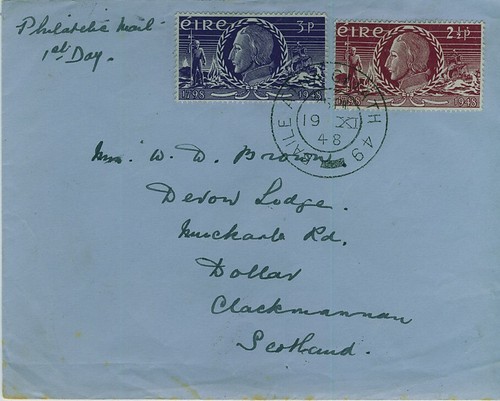 Philatelic Mail
1st Day.
éire 3p
1798 1948
éire 2½p
1798 1948
BAILE ÁTHA CLIATH 49
19 XI
48
Mrs. W. D. Brown
Devon Lodge.
Muckart Rd.
Dollar
Clackmannan
Scotland.